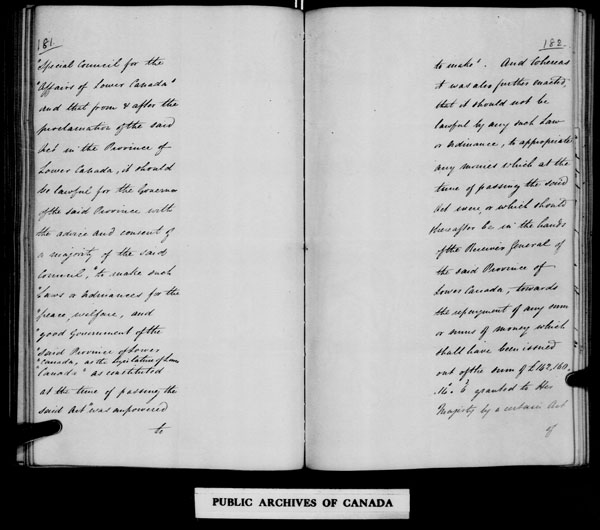 181
"Special Council for the
"Affairs of Lower Canada"
and that from & after the
proclamation of the said
Act in the Province of
Lower Canada, it should
be lawful for the Governor
of the said Province with
the advice and consent of
a majority of the said
Council, "to make such
"Laws or Ordinances for the
"peace, welfare, and
"good Government of the
"said Province of Lower
"Canada, as the Legislature of Lower
"Canada" as constituted
at the time of passing the
said Act "was empowered
to
182
to make". And Whereas
it was also further enacted,
that it should not be
lawful by any such Law
or Ordinance, to appropriate
any monies which at the
time of passing the said
Act were, or which should
thereafter be in the hands
of the Receiver General of
the said Province of
Lower Canada, towards
the repayment of any sum
or sums of money which
shall have been issued
out of the sum of £142,160.
14. 6 granted to Her
Majesty by a certain Act
of
PUBLIC ARCHIVES OF CANADA